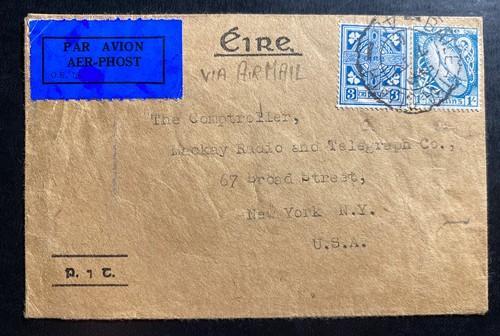 PAR AVION
AER-PHOST
Éire
VIA AIRMAIL
3
1
The Comptroller,
Mackay Radio and Telegraph Co.,
67 Broad Street,
New York N.Y.
U.S.A.
p. ⁊ t.